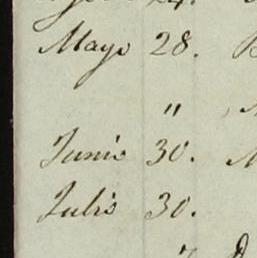 Mayo 28.
"
Junio 30.
Julio 30.